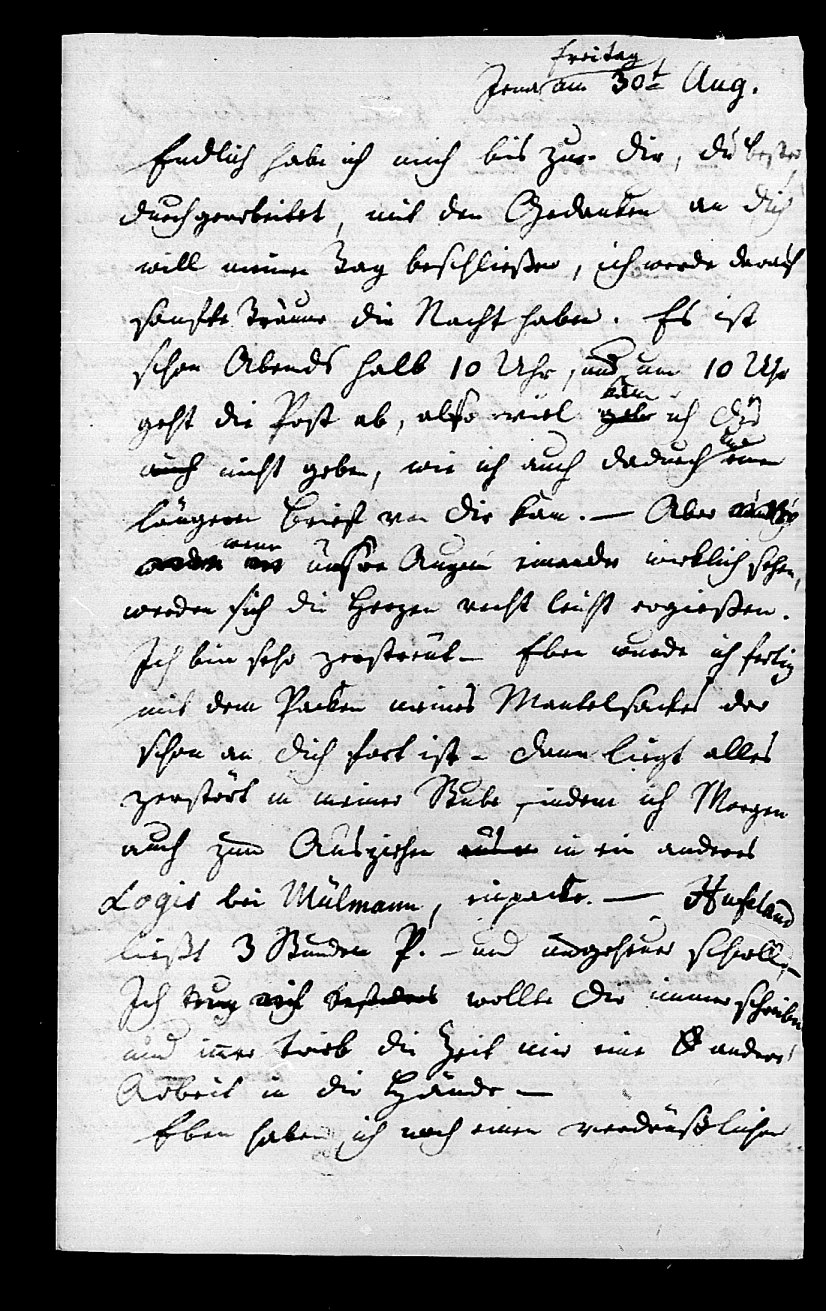 Freitag
Jena am 30t Aug.
Endlich habe ich mich bis zu dir, du bester
durchgearbeitet, mit den Gedanken an dich
will meinen Tag beschließen, ich werde darauf
sanfte Träume die Nacht haben. Es ist
schon Abends halb 10 Uhr, und um 10 Uhr
geht die Post ab, also viel kan ich dir
auch nicht geben, wie ich auch dadurch
längern Brief von dir kan. — Aber
wenn unsre Augen einander wirklich sehen,
werden sich die Herzen recht leicht ergießen.
Ich bin sehr zerstreut — Eben wurde ich fertig
mit dem Packen meines Mantelsackes der
schon an dich fort ist — dann liegt alles
zerstört in meiner Stube, indem ich Morgen
auch zum Ausziehen aus in ein anderes
Logis bei Mülmann, einpacke. — Hufeland
ließt 3 Stunden P. — und ungeheuer schnell, —
Ich wollte dir immer schreiben
und imer trieb die Zeit mir eine andere
Arbeit in die Hände —
Eben habe ich noch einen verdrüßlichen